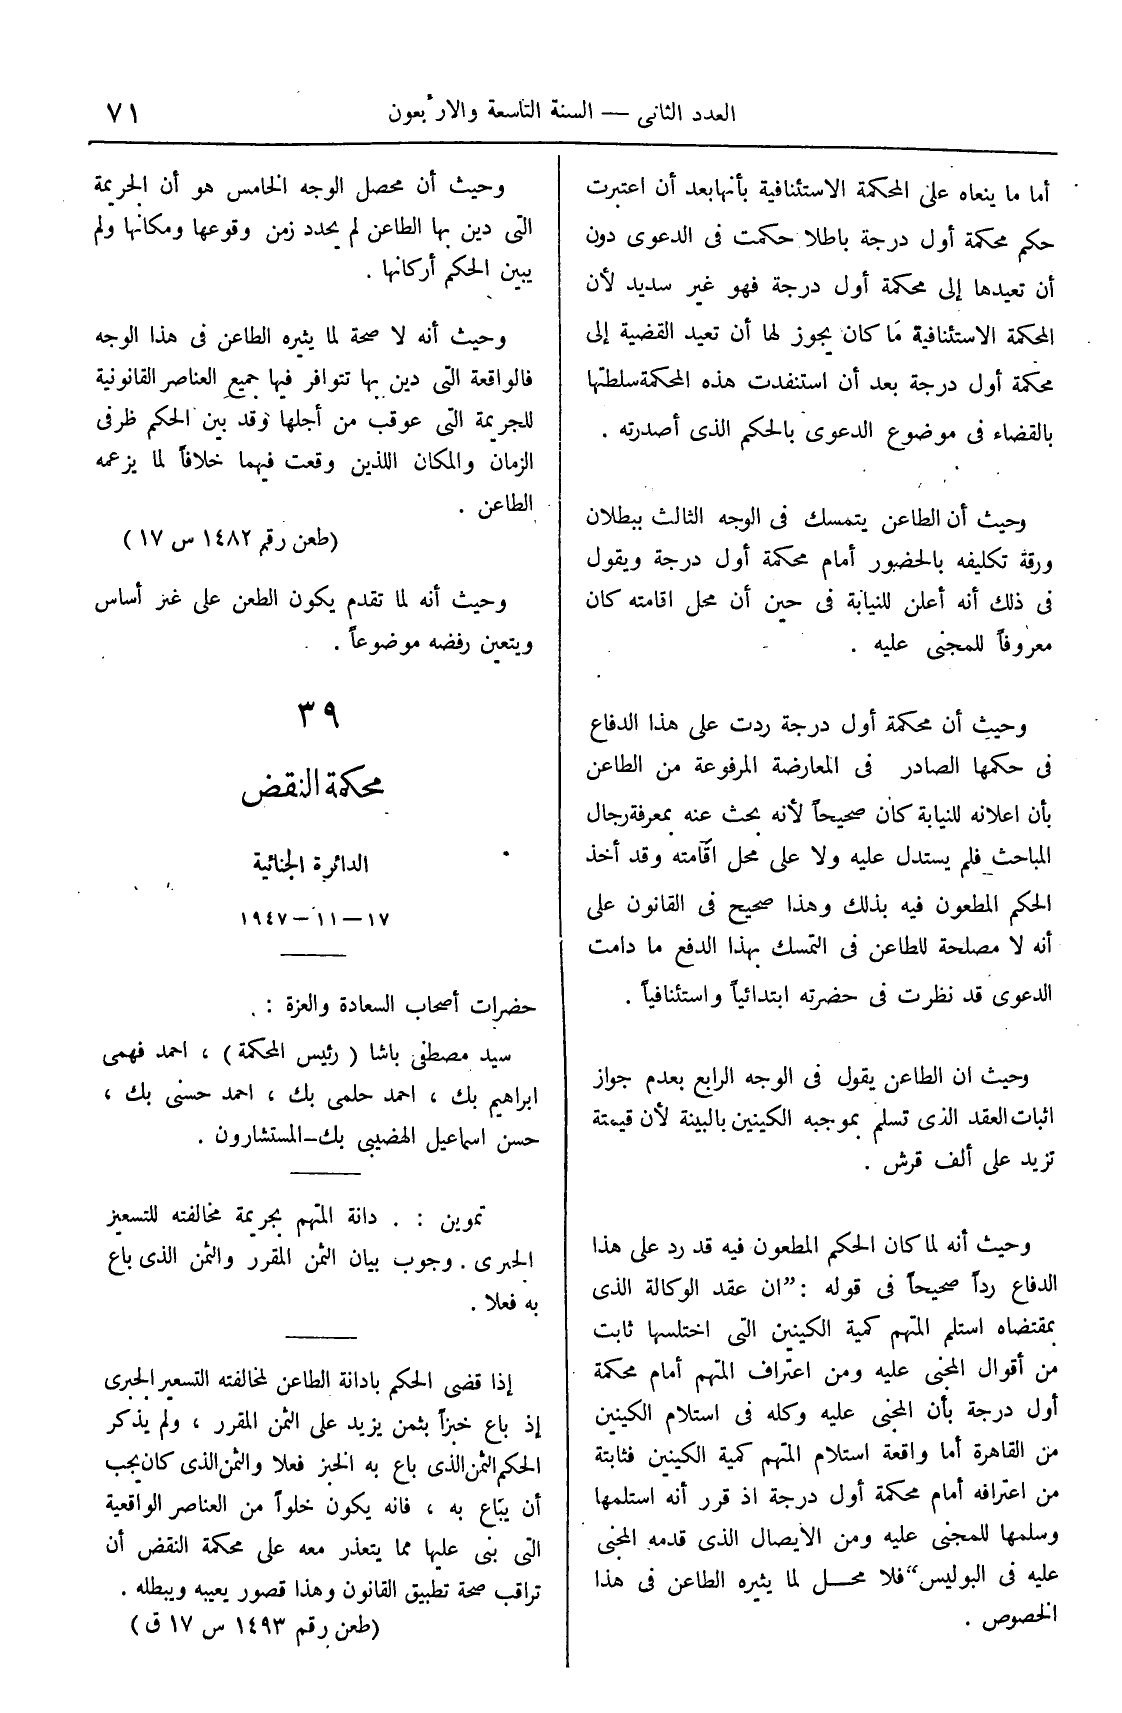 العدد الثانى — السنة التاسعة والاربعون
٧١
أما ما ينعاه على المحكمة الاستئنافية بأنها بعد أن اعتبرت
حكم محكمة أول درجة باطلا حكمت فى الدعوى دون
أن تعيدها إلى محكمة أول درجة فهو غير سديد لأن
المحكمة الاستئنافية ما كان يجوز لها أن تعيد القضية إلى
محكمة أول درجة بعد أن استنفدت هذه المحكمة سلطتها
بالقضاء فى موضوع الدعوى بالحكم الذى أصدرته .
وحيث أن الطاعن يتمسك فى الوجه الثالث ببطلان
ورقة تكليفه بالحضور أمام محكمة أول درجة ويقول
فى ذلك أنه أعلن للنيابة فى حين أن محل اقامته كان
معروفاً للمجنى عليه .
وحيث أن محكمة أول درجة ردت على هذا الدفاع
فى حكمها الصادر فى المعارضة المرفوعة من الطاعن
بأن اعلانه للنيابة كان صحيحاً لأنه بحث عنه بمعرفة رجال
المباحث فلم يستدل عليه ولا على محل اقامته وقد أخذ
الحكم المطعون فيه بذلك وهذا صحيح فى القانون على
أنه لا مصلحة للطاعن فى التمسك بهذا الدفع ما دامت
الدعوى قد نظرت فى حضرته ابتدائياً واستئنافياً .
وحيث ان الطاعن يقول فى الوجه الرابع بعدم جواز
اثبات العقد الذى تسلم بموجبه الكينين بالبينة لأن قيمتة
تزيد على ألف قرش .
وحيث أنه لما كان الحكم المطعون فيه قد رد على هذا
الدفاع رداً صحيحاً فى قوله : ”ان عقد الوكالة الذى
بمقتضاه استلم المتهم كمية الكينين التى اختلسها ثابت
من أقوال المجنى عليه ومن اعتراف المتهم أمام محكمة
أول درجة بأن المجنى عليه وكله فى استلام الكينين
من القاهرة أما واقعة استلام المتهم كمية الكينين فثابتة
من اعترافه أمام محكمة أول درجة اذ قرر أنه استلمها
وسلمها للمجنى عليه ومن الأيصال الذى قدمه المجنى
عليه فى البوليس“ فلا محـــل لما يثيره الطاعن فى هذا
الخصوص .
وحيث أن محصل الوجه الخامس هو أن الجريمة
التى دين بها الطاعن لم يحدد زمن وقوعها ومكانها ولم
يبين الحكم أركانها .
وحيث أنه لا صحة لما يثيره الطاعن فى هذا الوجه
فالواقعة التى دين بها تتوافر فيها جميع العناصر القانونية
للجريمة التى عوقب من أجلها وقد بين الحكم ظرفى
الزمان والمكان اللذين وقعت فيهما خلافاً لما يزعمه
الطاعن .
(طعن رقم ١٤٨٢ س ١٧)
وحيث أنه لما تقدم يكون الطعن على غير أساس
ويتعين رفضه موضوعاً .
٣٩
محكمة النقض
الدائرة الجنائية
١٧—١١—١٩٤٧
حضرات أصحاب السعادة والعزة :
سيد مصطفى باشا ( رئيس المحكمة ) ، احمد فهمى
ابراهيم بك ، احمد حلمى بك ، احمد حسنى بك ،
حسن اسماعيل الهضيبى بك—المستشارون .
تموين : . دانة المتهم بجريمة مخالفته للتسعيز
الجبرى . وجوب بيان الثمن المقرر والثمن الذى باع
به فعلا .
إذا قضى الحكم بادانة الطاعن لمخالفته التسعير الجبرى
إذ باع خبزاً بثمن يزيد على الثمن المقرر ، ولم يذكر
الحكم الثمن الذى باع به الخبز فعلا والثمن الذى كان يجب
أن يباع به ، فانه يكون خلواً من العناصر الواقعية
التى بنى عليها مما يتعذر معه على محكمة النقض أن
تراقب صحة تطبيق القانون وهذا قصور يعيبه ويبطله .
(طعن رقم ١٤٩٣ س ١٧ ق)